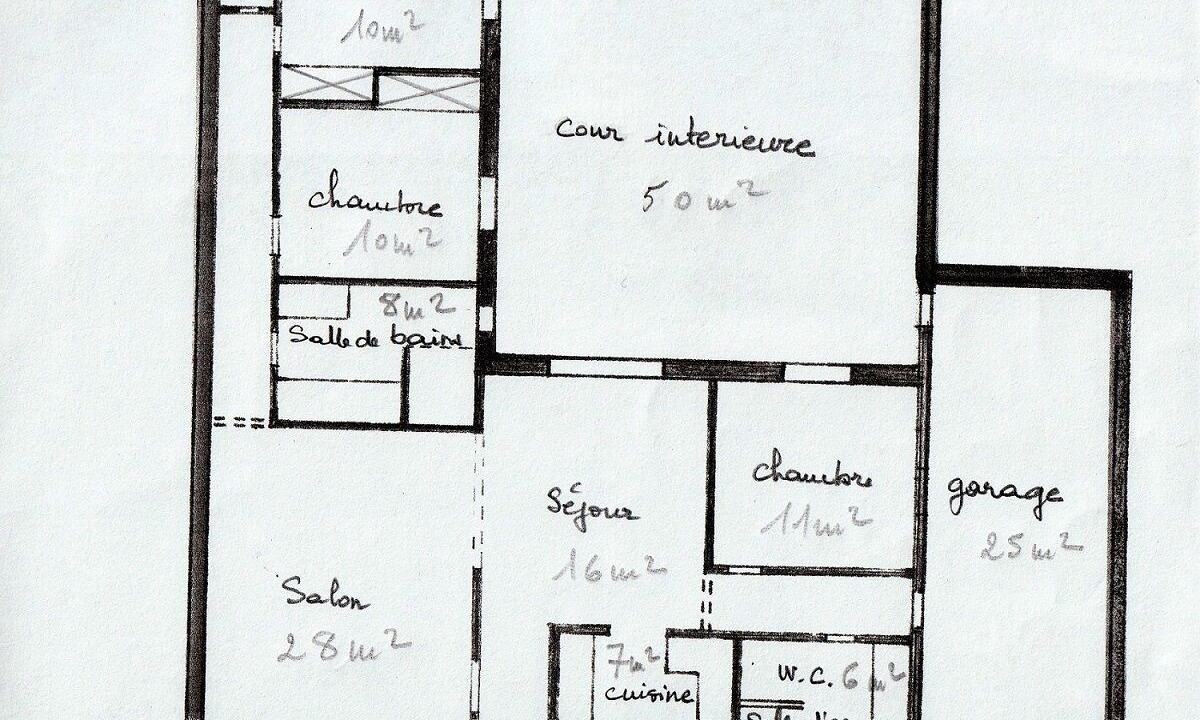 10m²
cour interieure
50m²
chambre
10m²
8m²
Salle de bains
chambre
11m²
garage
25m²
Séjour
16m²
Salon
28m²
7m²
cuisine
W.C. 6m²